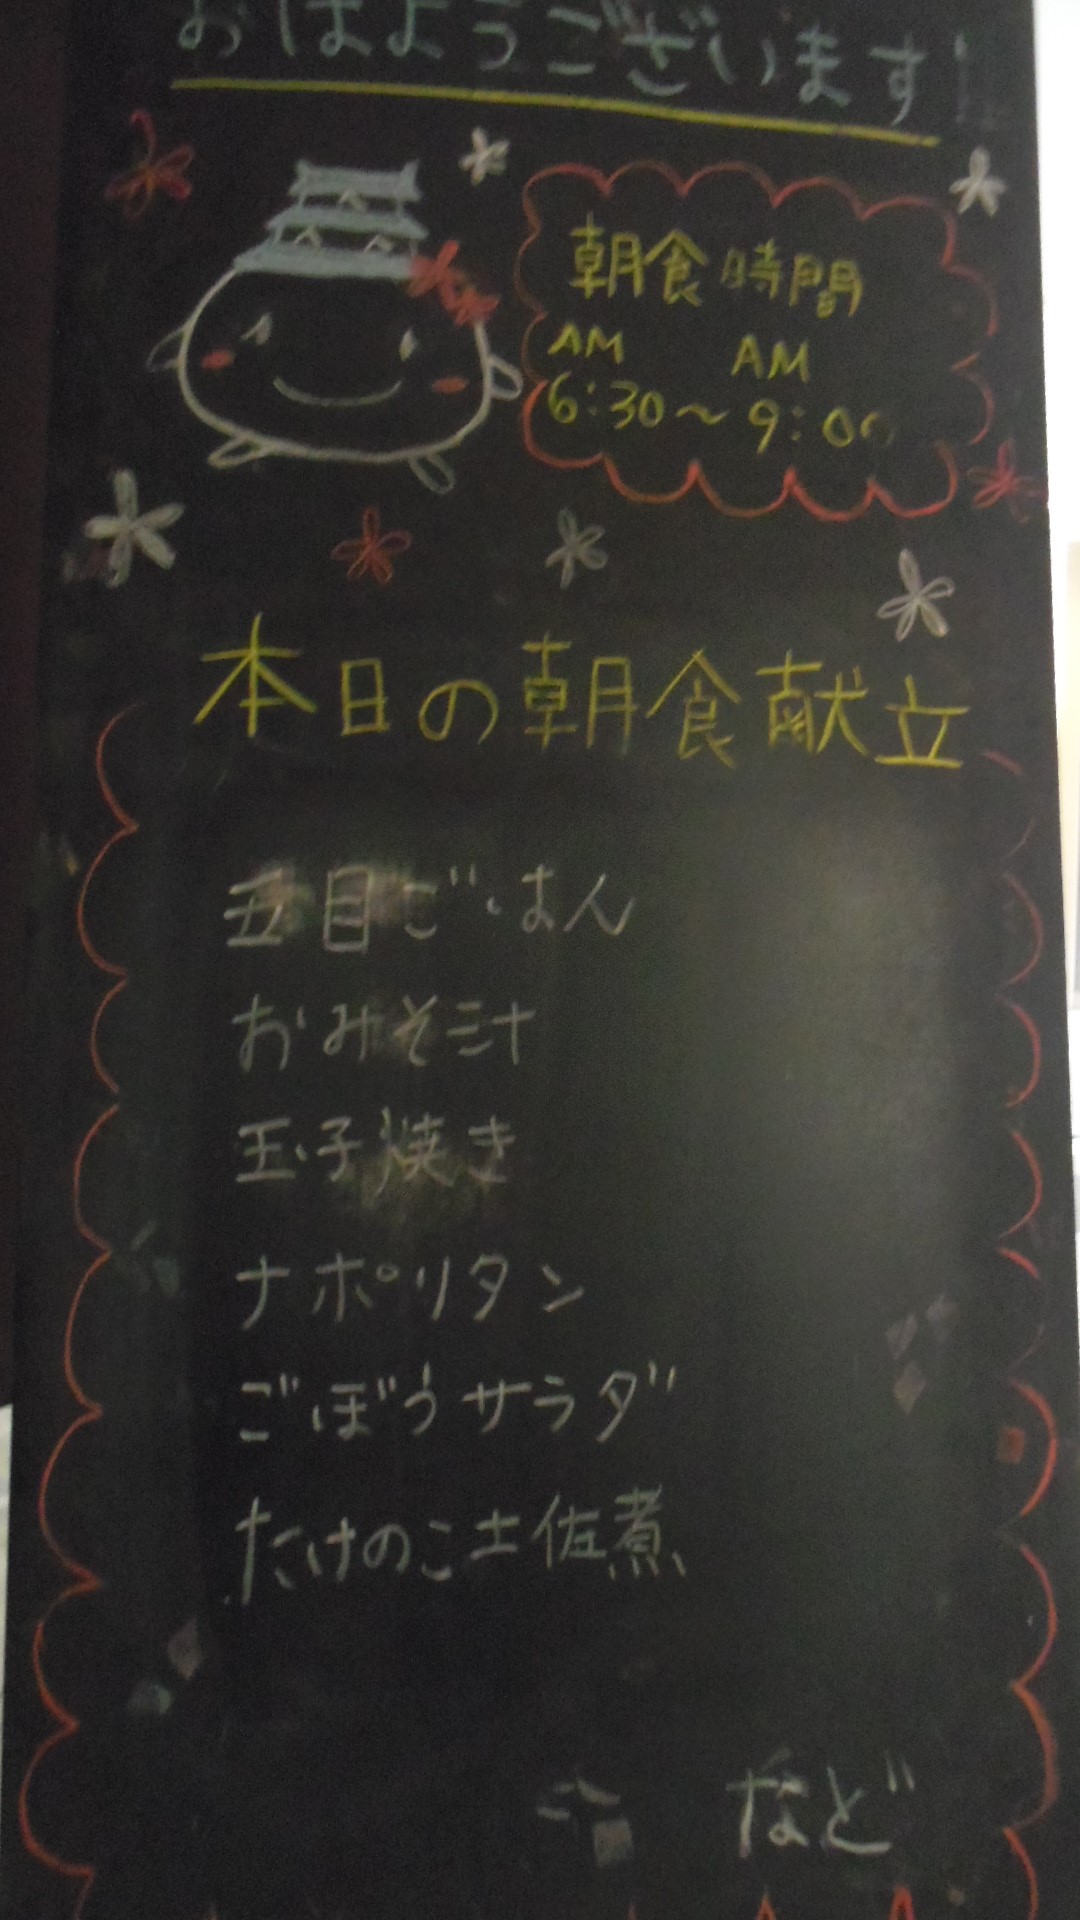 おはようございます!
朝食時間
AM AM
6:30～9:00
本日の朝食献立
五目ごはん
おみそ汁
玉子焼き
ナポリタン
ごぼうサラダ
たけのこ土佐煮
など